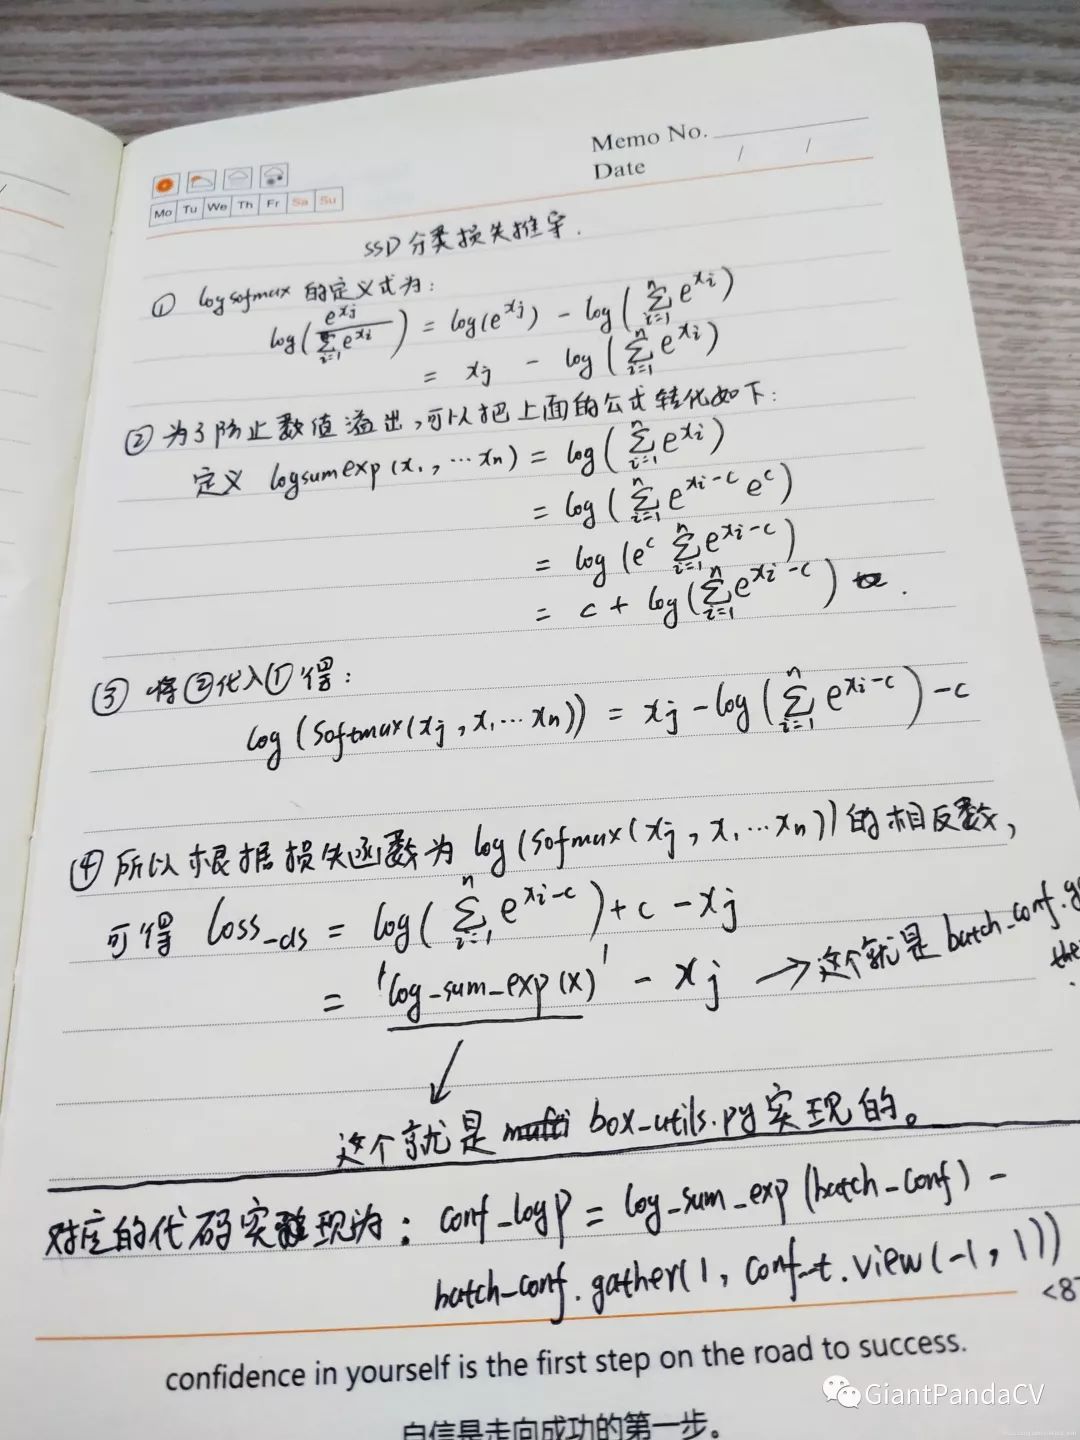 Memo No.
Date / /
Mo Tu We Th Fr Sa Su
SSD分类损失推导.
① logsofmax 的定义式为:
log(e^{xj} / Σ_{i=1} e^{xi}) = log(e^{xj}) - log(Σ_{i=1}^{n} e^{xi})
= xj - log(Σ_{i=1}^{n} e^{xi})
② 为了防止数值溢出,可以把上面的公式转化如下:
定义 logsumexp(x1, ⋯ xn) = log(Σ_{i=1}^{n} e^{xi})
= log(Σ_{i=1}^{n} e^{xi-c} e^{c})
= log(e^{c} Σ_{i=1}^{n} e^{xi-c})
= c + log(Σ_{i=1}^{n} e^{xi-c}) .
③ 将②代入①得:
log(Softmax(xj, x1 ⋯ xn)) = xj - log(Σ_{i=1}^{n} e^{xi-c}) - c
④ 所以根据损失函数为 log(Sofmax(xj, x1 ⋯ xn)) 的相反数,
可得 Loss_cls = log(Σ_{i=1}^{n} e^{xi-c}) + c - xj
= 'log_sum_exp(x)' - xj → 这个就是 batch_conf.ga
the
这个就是 box_utils.py实现的。
对应的代码实现为: conf_logP = log_sum_exp(batch_conf) -
batch_conf.gather(1, conf_t.view(-1, 1))
<87
confidence in yourself is the first step on the road to success.
自信是走向成功的第一步。
GiantPandaCV